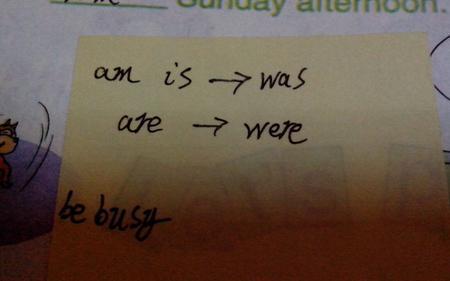 Sunday afternoon.
am is → was
are → were
be busy